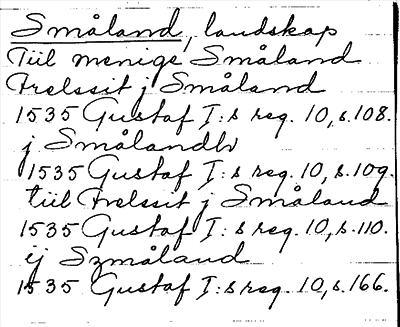 Småland, landskap
Tiil menige Småland
Frelssit j Småland
1535 Gustaf I:s reg. 10, s. 108.
j Smålandh
1535 Gustaf I:s reg. 10, s. 109.
tiil Frelssit j Småland
1535 Gustaf I:s reg. 10, s. 110.
ij Szmåland
1535 Gustaf I:s reg. 10, s. 166.